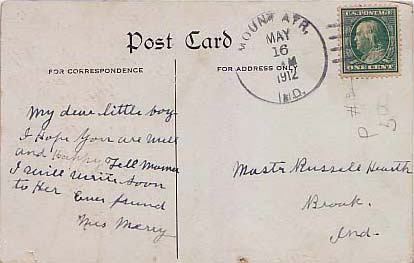 Post Card
FOR CORRESPONDENCE
FOR ADDRESS ONLY
MOUNT AYR,
MAY
16
AM
1912
IND.
U.S. POSTAGE
ONE CENT
My dear little boy
I Hope You are well
and Happy Tell Mama
I will write soon
to Her Ever friend
Mrs Merry
Mastr Russell Hearth
Brook.
Ind.